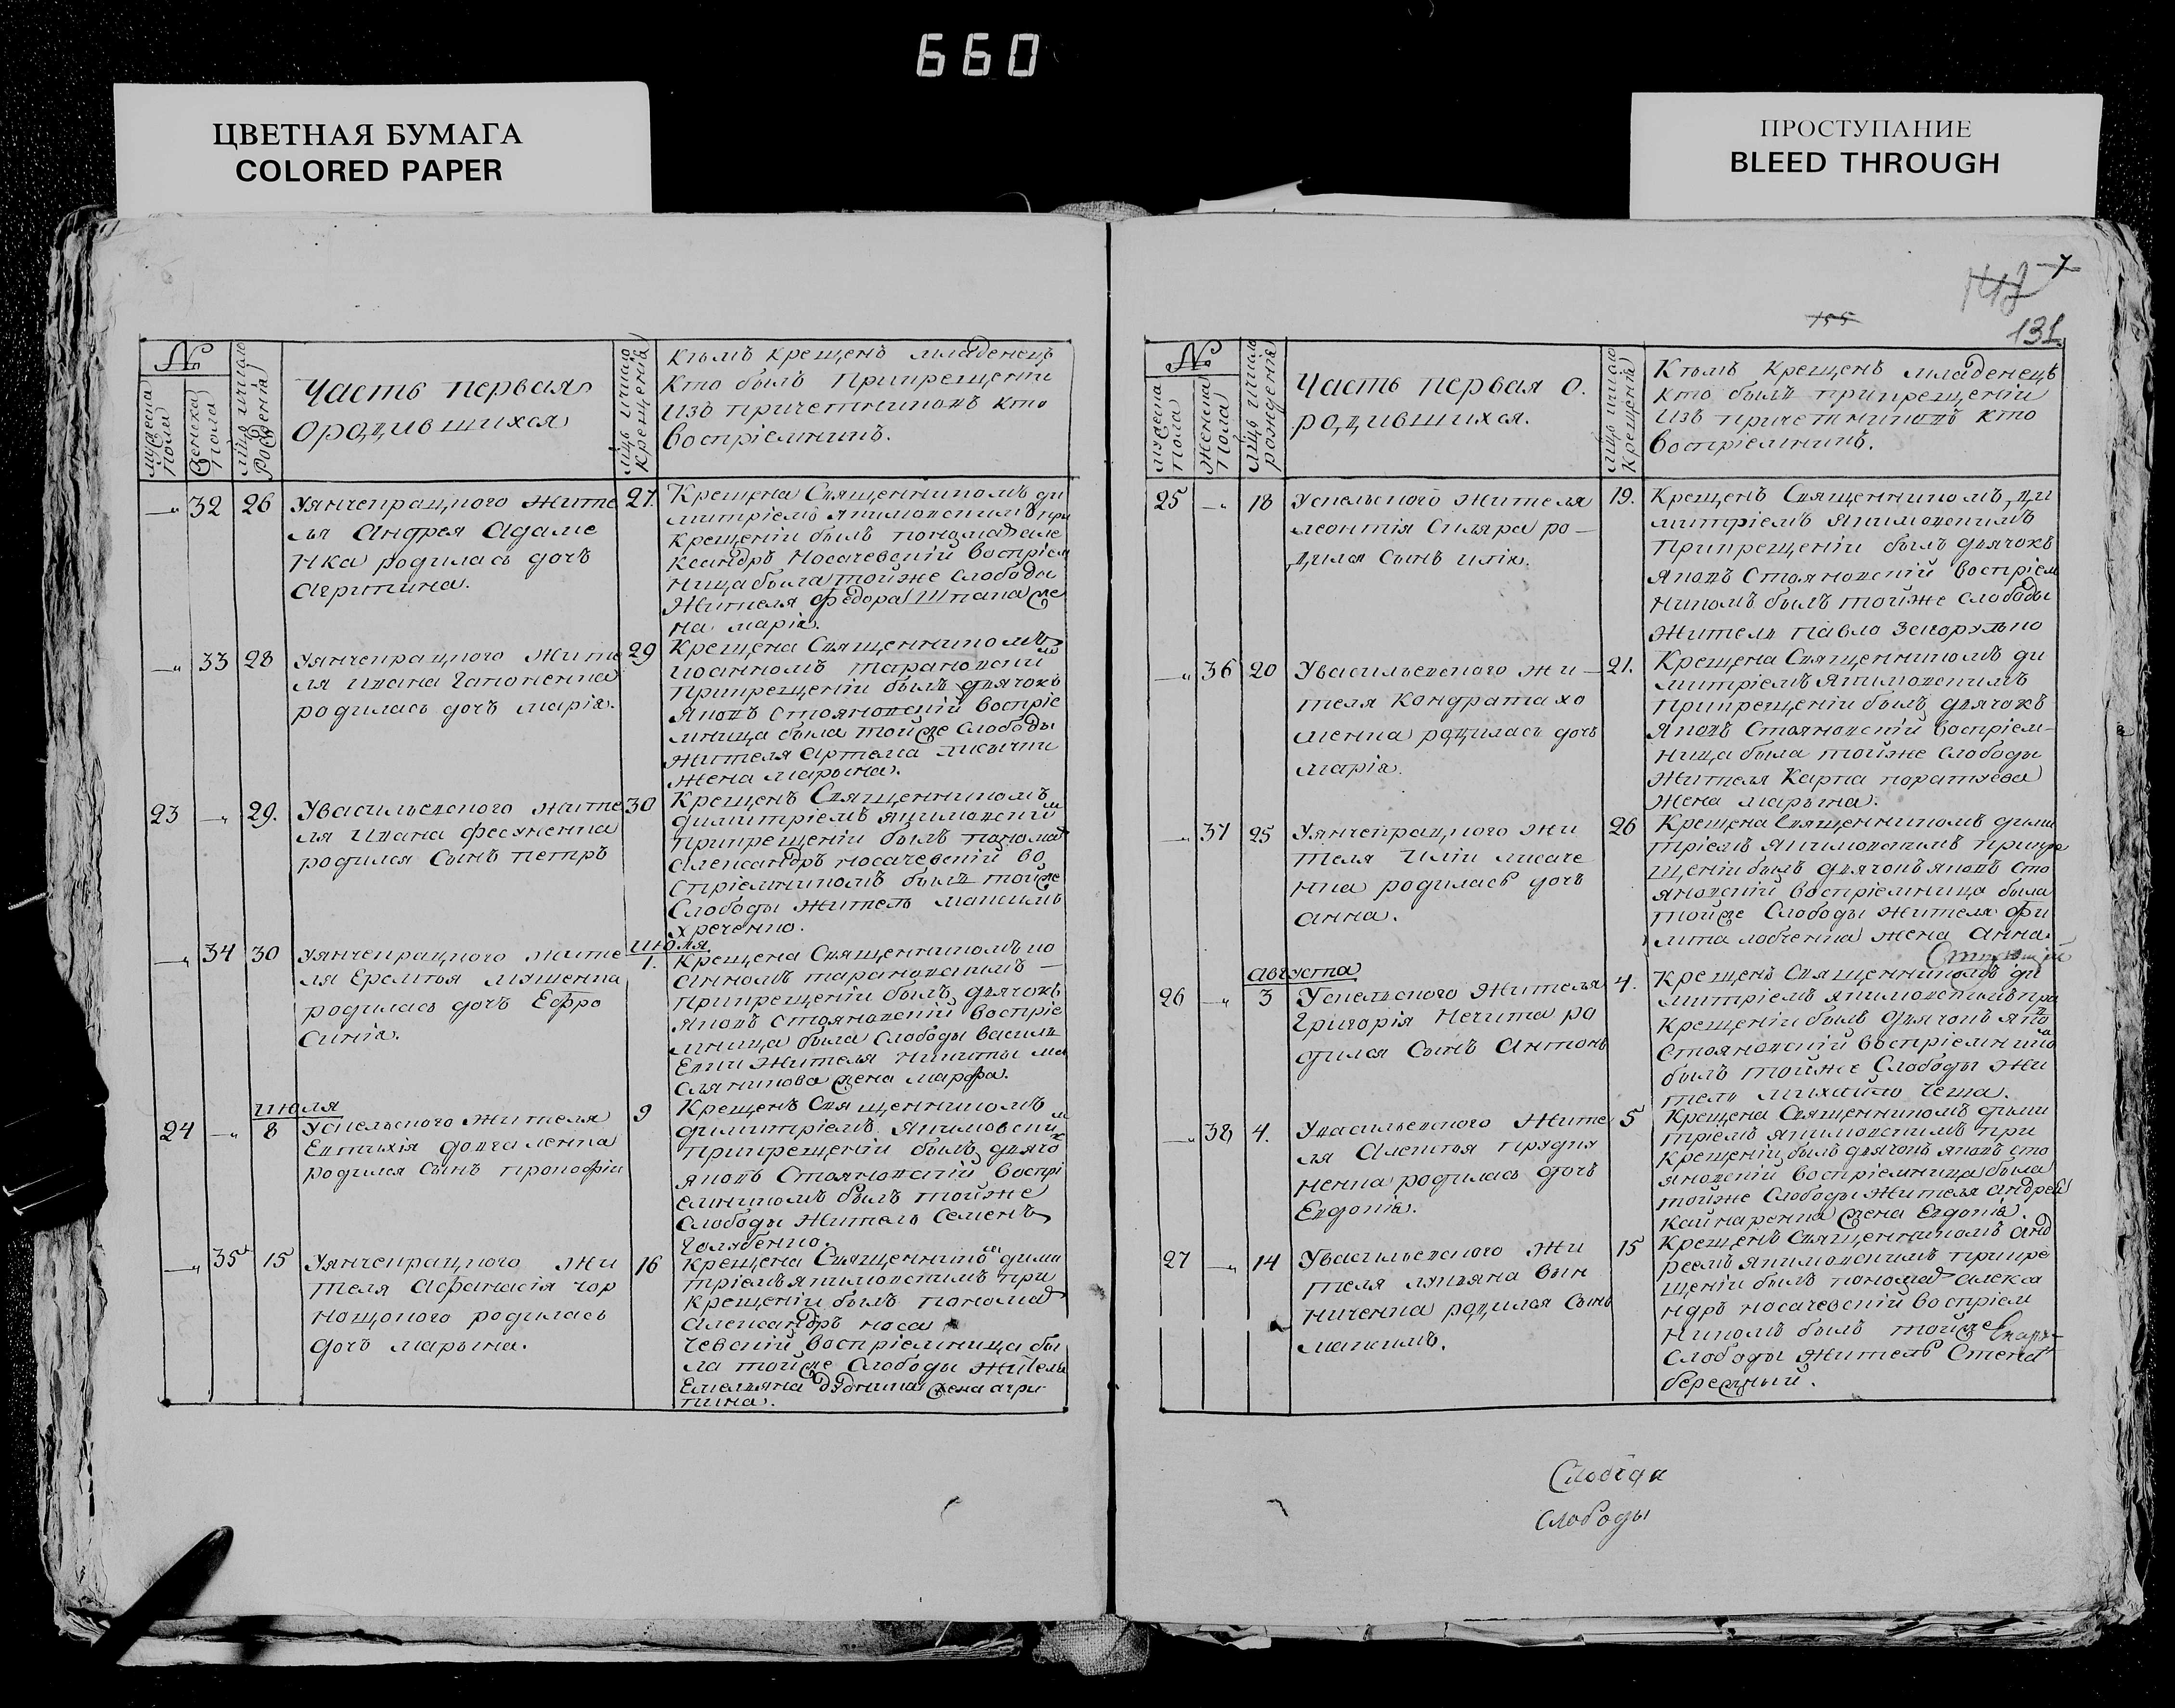 660
ЦВЕТНАЯ БУМАГА
COLORED PAPER
ПРОСТУПАНИЕ
BLEED THROUGH
7
155
131
№
мужеска пола
женска пола
рождения
Часть первая
о родившихся
крещенія
Кѣмъ крещенъ младенецъ
кто былъ при крещеніи
изъ причетниковъ кто
воспріемникъ.
32 26
жите
ля Андрея Адаме
нка родилась дочь
Агрипина.
27.
Крещена Священникомъ ди
митріемъ Якимовскимъ при
крещеніи былъ пономарь але
ксандръ Носачевскій воспріем
ница была тойже слободы
жителя Федора Шпака же
на марія.
33 28
жите
ля ивана Гапоненка
родилась дочь марія.
29
Крещена Священникомъ
иоанномъ тарановским
при крещеніи былъ дьячокъ
Яковъ Стояновскій воспріе
мница была тойже слободы
жителя Артема лисычки
жена марьина.
23 29.
У васильевского жите
ля ивана Фесуненка
родился сынъ петръ
30
Крещенъ Священникомъ
димитріемъ якимовским
при крещеніи былъ пономар
александръ носачевскій во
спріемникомъ былъ тойже
слободы житель максимъ
хреченко.
34 30
жите
ля Еремѣя ляшенка
родилась дочь Ефро
синія.
июля
1.
Крещена Священникомъ ио
анномъ тарановскимъ
при крещеніи былъ дьячокъ
яковъ стояновскій воспріе
мница была слободы василь
евки жителя никиты ма
сляникова жена марфа.
июля
24 8
Успельского жителя
Евтихія довгаленка
родился сынъ прокофій
9
Крещенъ Священникомъ
димитріемъ Якимовским
при крещеніи былъ дьячок
яковъ Стояновскій воспрі
емникомъ былъ тойже
слободы житель семенъ
голябенко.
35 15
жи
теля Афанасія чор
нощокого родилась
дочь марьина.
16
Крещена Священником дими
тріемъ якимовскимъ при
крещеніи былъ пономар
александръ носа
чевскій воспріемница бы
ла тойже слободы жителя
Емельяна жена агри
пина.
№
мужеска пола
женска пола
рожденія
Часть первая о
родившихся.
крещенія
Кѣмъ крещенъ младенецъ
кто былъ при крещеніи
изъ причетниковъ кто
воспріемникъ.
25 18
Успельского жителя
леонтія Скляра ро
дился сынъ илія.
19.
Крещенъ Священникомъ ди
митріемъ якимовскимъ
при крещеніи былъ дьячокъ
яковъ Стояновскій воспріем
никомъ былъ тойже слободы
житель павло
36 20
У васильевского жи
теля Кондрата хо
менка родилась дочь
марія.
21.
Крещена Священникомъ ди
митріемъ якимовскимъ
при крещеніи былъ дьячокъ
яковъ Стояновскій воспріем
ница была тойже слободы
жителя Карпа
жена марьина.
37 25
жи
теля Иліи лисаче
нка родилась дочь
анна.
26
Крещена Священникомъ дими
тріемъ якимовскимъ при кре
щеніи былъ дьячокъ яковъ сто
яновскій воспріемница была
тойже слободы жителя
лобченка жена анна.
августа
26 3
Успельского жителя
Григорія Нечита ро
дился сынъ антонъ
4.
Крещенъ Священникомъ ди
митріемъ якимовскимъ при
крещеніи былъ дьячокъ яков
стояновскій воспріемнико
былъ тойже слободы жи
тель михайло чеша.
38 4.
У васильевского жите
ля Алексѣя прядил
ненка родилась дочь
Евдокія.
5
Крещена Священникомъ дими
тріемъ якимовскимъ при
крещеніи былъ дьячокъ яковъ сто
яновскій воспріемница была
тойже слободы жителя андрея
жена Евдокія.
27 14
У васильевского жи
теля лукьяна вин
ниченка родился сынъ
максимъ.
15
Крещенъ Священникомъ анд
реемъ якимовскимъ при кре
щеніи былъ пономар алекса
ндръ носачевскій воспріем
никомъ былъ тойже
слободы житель Степа
бережный.
слободы